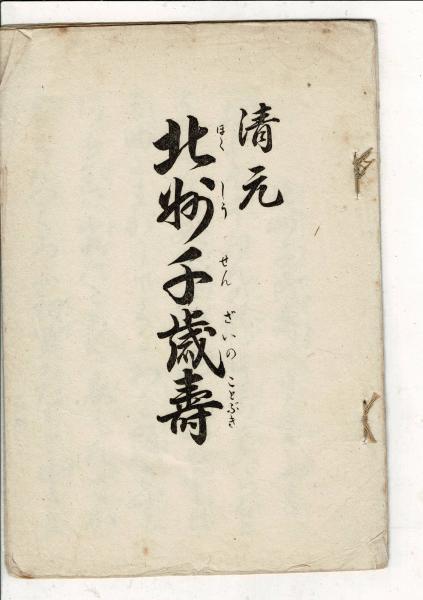 清元
北州千歳壽
ほくしうせんざいのことぶき